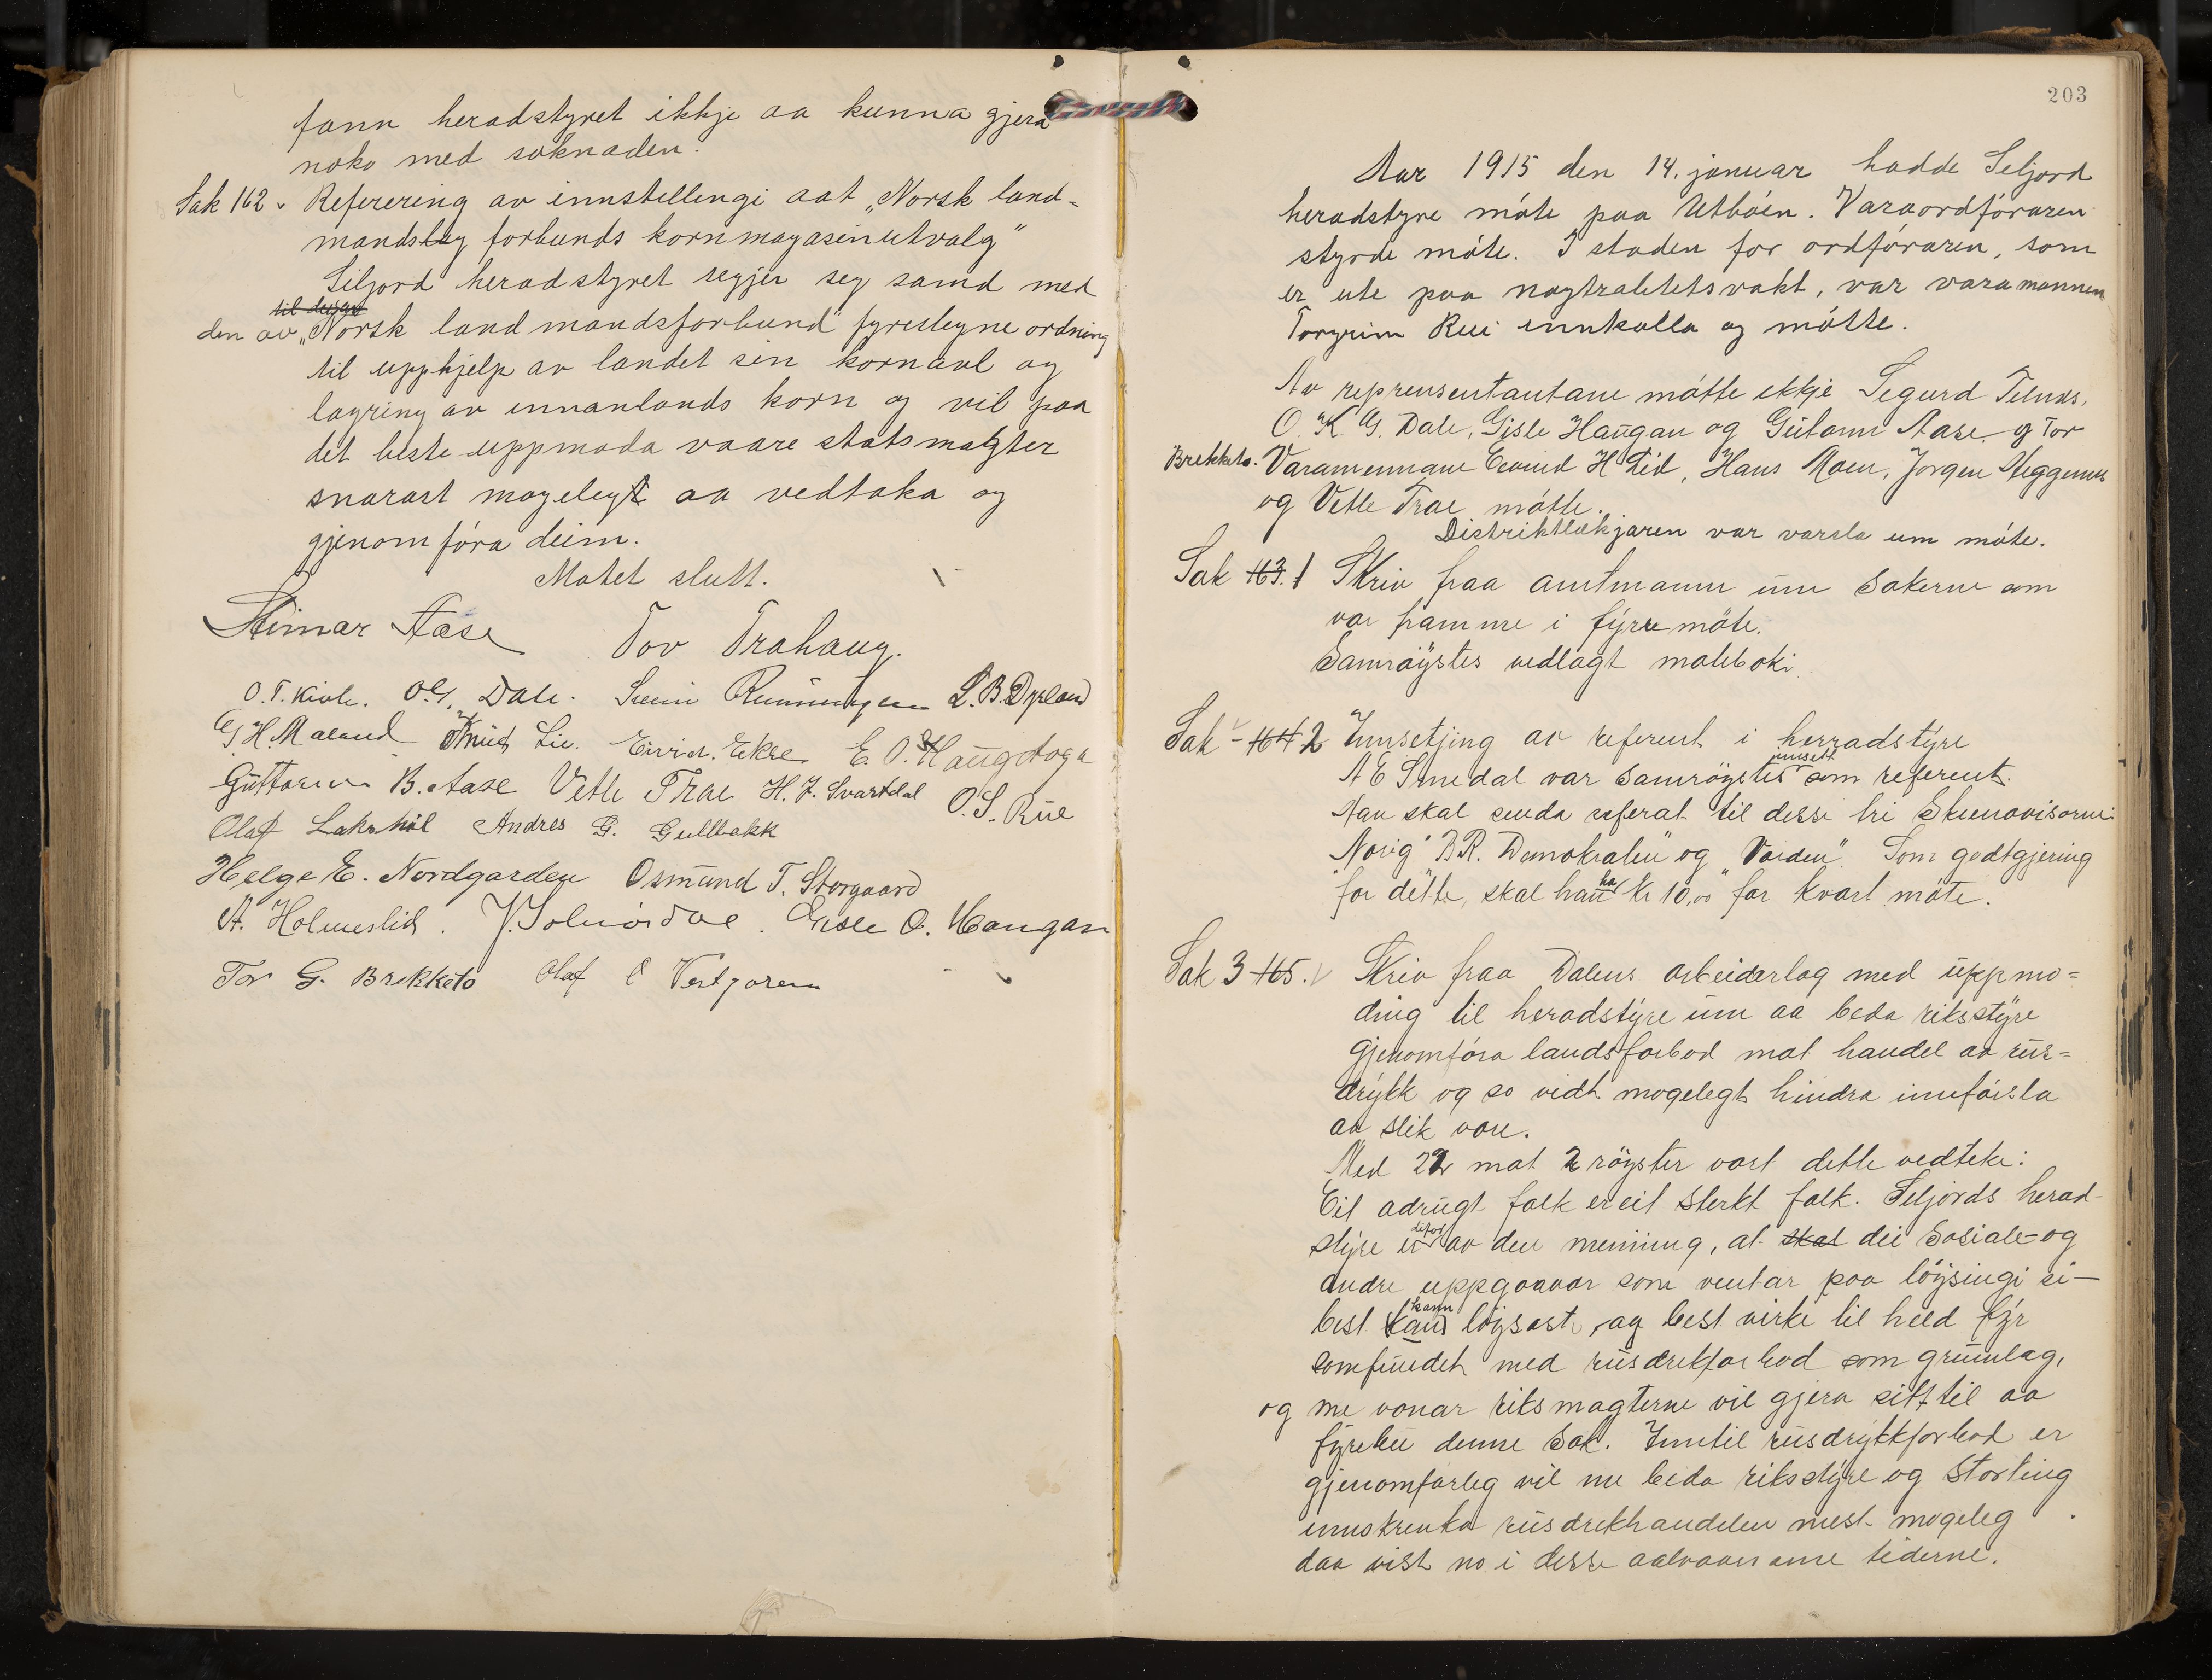 fann heradstyret ikkje aa kunna gjera
noko med søknaden.
Sak 162. Referering av innstellengi aat „Norsk land-
mandslag forbunds kornmagasinutvalg"
Seljord heradstyret segjer seg samd med
til deira
den av „Norsk landmandsforbund" fyreslegne ordning
til upphjelp av landet sin kornavl og
lagring av innanlands korn og vil paa
det beste uppmoda vaare statsmagter
snarast mogelegt aa vedtaka og
gjenomføra deim.
Møtet slutt.
Steinar Aase Tov Trahaug.
O.T. Kivle. O.G. Dale. Svein Runningen L.B. Dyrland
G.H. Maland Knut Lie. Eivind Ekre E.O. Haugstoga
Guttorm B. Aase Vetle Trae H.J. Svartdal O.S. Rue
Olaf Lakshøl Andres G. Gullbekk
Helge E. Nordgarden Osmund T. Storgaard
A. Holmeslid. J. Solmørdal. Gisle O. Haugan
Tor G. Brekketo Olaf O Vestgaren
203
Aar 1915 den 14. januar hadde Seljord
heradstyre møte paa Utbøen. Varaordføraren
styrde møte. I staden for ordføraren, som
er ute paa nøytralitetsvakt, var varamannen
Torgrim Rui innkalla og møtte.
Av reprensentantane møtte ikkje Sigurd Telnes,
O. K. G. Dale, Gisle Haugan og Gutorm Aase og Tor
Brekketo. Varamennane Eivind H Lid, Hans Moen, Jørgen Heggenes
og Vetle Trae møtte.
Distriktlækjaren var varsla um møte.
Sak 163. 1 Skriv fraa amtmann um sakerne som
var framme i fyrre møte.
Samrøystes vedlagt møteboki.
Sak - 164 2 Innsetjing av referent i herradstyre
innsett
A E Smedal var samrøystes som referent.
Han skal senda referat til desse tri Skiensavisorne:
„Norig" BR. Demokraten" og „Varden". Som godtgjering
for dette, skal han ha kr 10,00 for kvart møte.
Sak 3 165. Skriv fraa Dalens arbeidarlag med uppmo=
ding til heradstyre um aa beda riksstyre
gjenomføra landsforbod mot handel av rus=
drykk og so vidt mogelegt hindra innførsla
av slik vare.
Med 22 mot 2 røyster vart dette vedteke:
Eit adrugt folk er eit sterkt folk. Seljords herad-
styre er difor av den meining, at skal dei sosiale- og
andre uppgaavor som ventar paa løysingi si -
best kann løysast, og best virke til held fyr
somfundet med rusdrikforbod som grunnlag,
og me vonar riksmagterne vil gjera sitt til aa
fyrebu denne sak. Inntil rusdrykkforbod er
gjenomførleg vil me beda riksstyre og Storting
innskrenka rusdrikhandelen mest mogeleg
daa vist no i desse aalvaarsame tiderne.